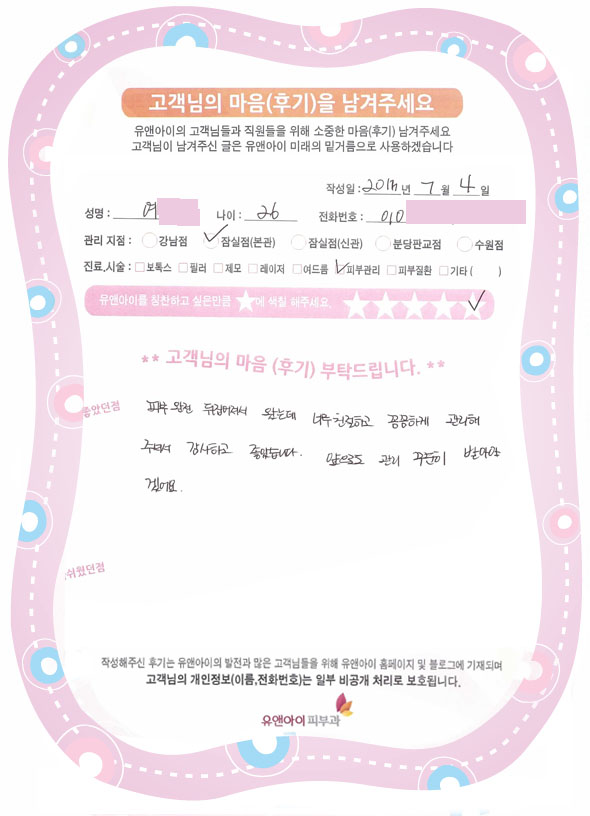 고객님의 마음(후기)을 남겨주세요
유앤아이의 고객님들과 직원들을 위해 소중한 마음(후기) 남겨주세요
고객님이 남겨주신 글은 유앤아이 미래의 밑거름으로 사용하겠습니다
작성일 : 2017년 7월 4일
성명 : 여 나이 : 26 전화번호 : 010
관리 지점 : 강남점 잠실점(본관) 잠실점(신관) 분당판교점 수원점
진료,시술 : 보톡스 필러 제모 레이저 여드름 피부관리 피부질환 기타 ( )
유앤아이를 칭찬하고 싶은만큼 ★에 색칠 해주세요.
** 고객님의 마음 (후기) 부탁드립니다. **
좋았던점
피부 완전 뒤집어져서 왔는데 너무 친절하고 꼼꼼하게 관리해
주셔서 감사하고 좋았습니다. 앞으로도 관리 꾸준히 받아야
겠어요.
쉬웠던점
작성해주신 후기는 유앤아이의 발전과 많은 고객님들을 위해 유앤아이 홈페이지 및 블로그에 기재되며
고객님의 개인정보(이름,전화번호)는 일부 비공개 처리로 보호됩니다.
유앤아이피부과